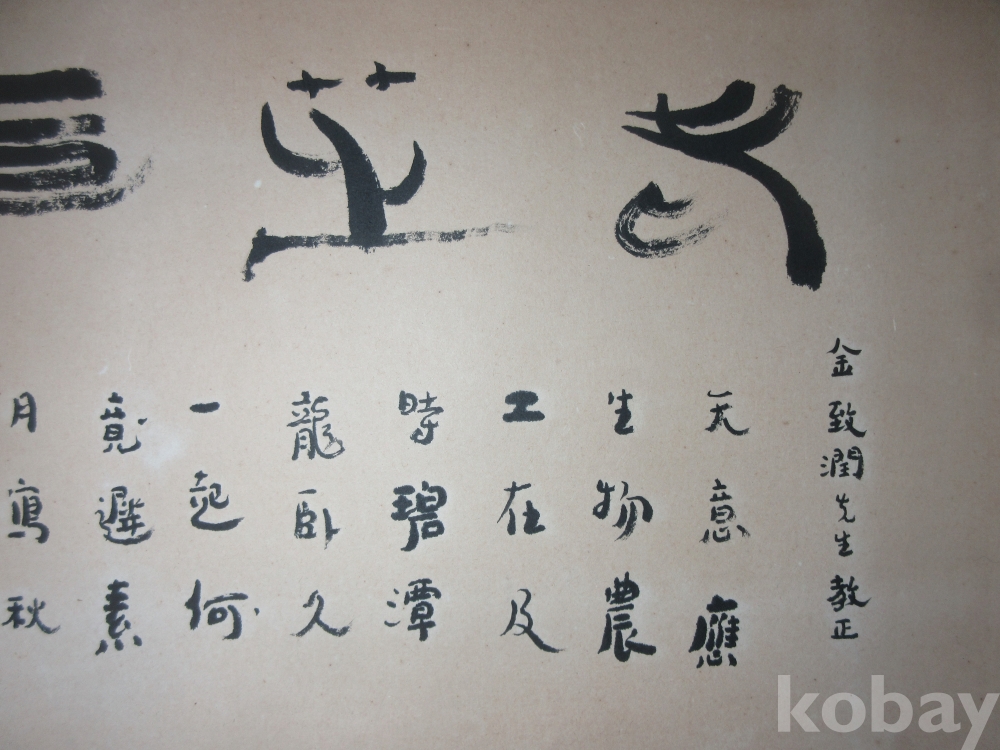 金致潤先生教正
天意應
生物農
工在及
時碧潭
龍臥久
一起何
竟遲素
月寫秋
kobay